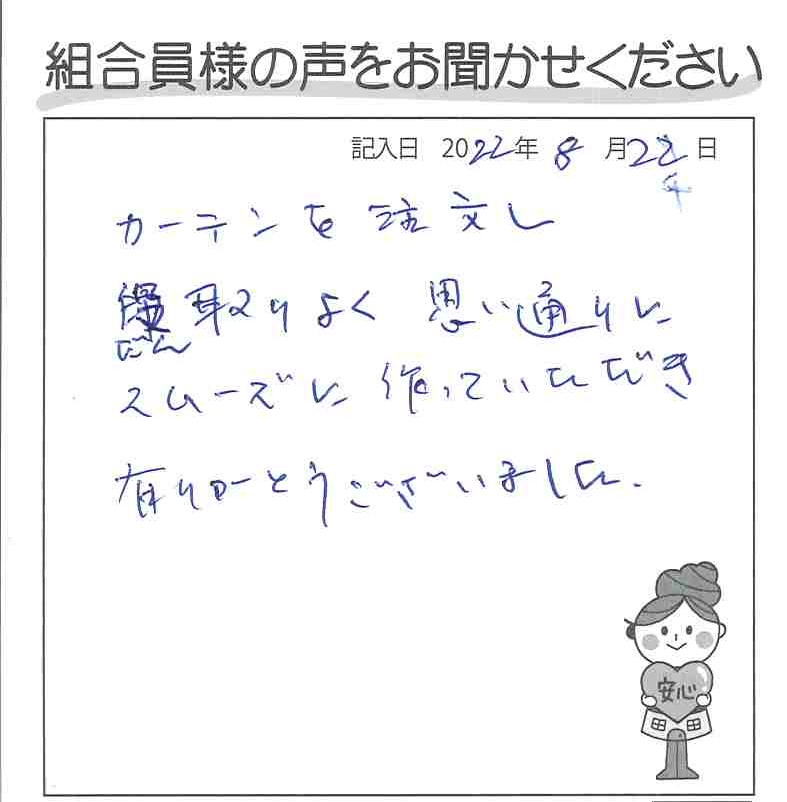 組合員様の声をお聞かせください
記入日 2022年 8 月22日
カーテンを 注文し
取りよく 思い通りに
だん
スムーズに 作っていただき
有りがとうございました.
安心